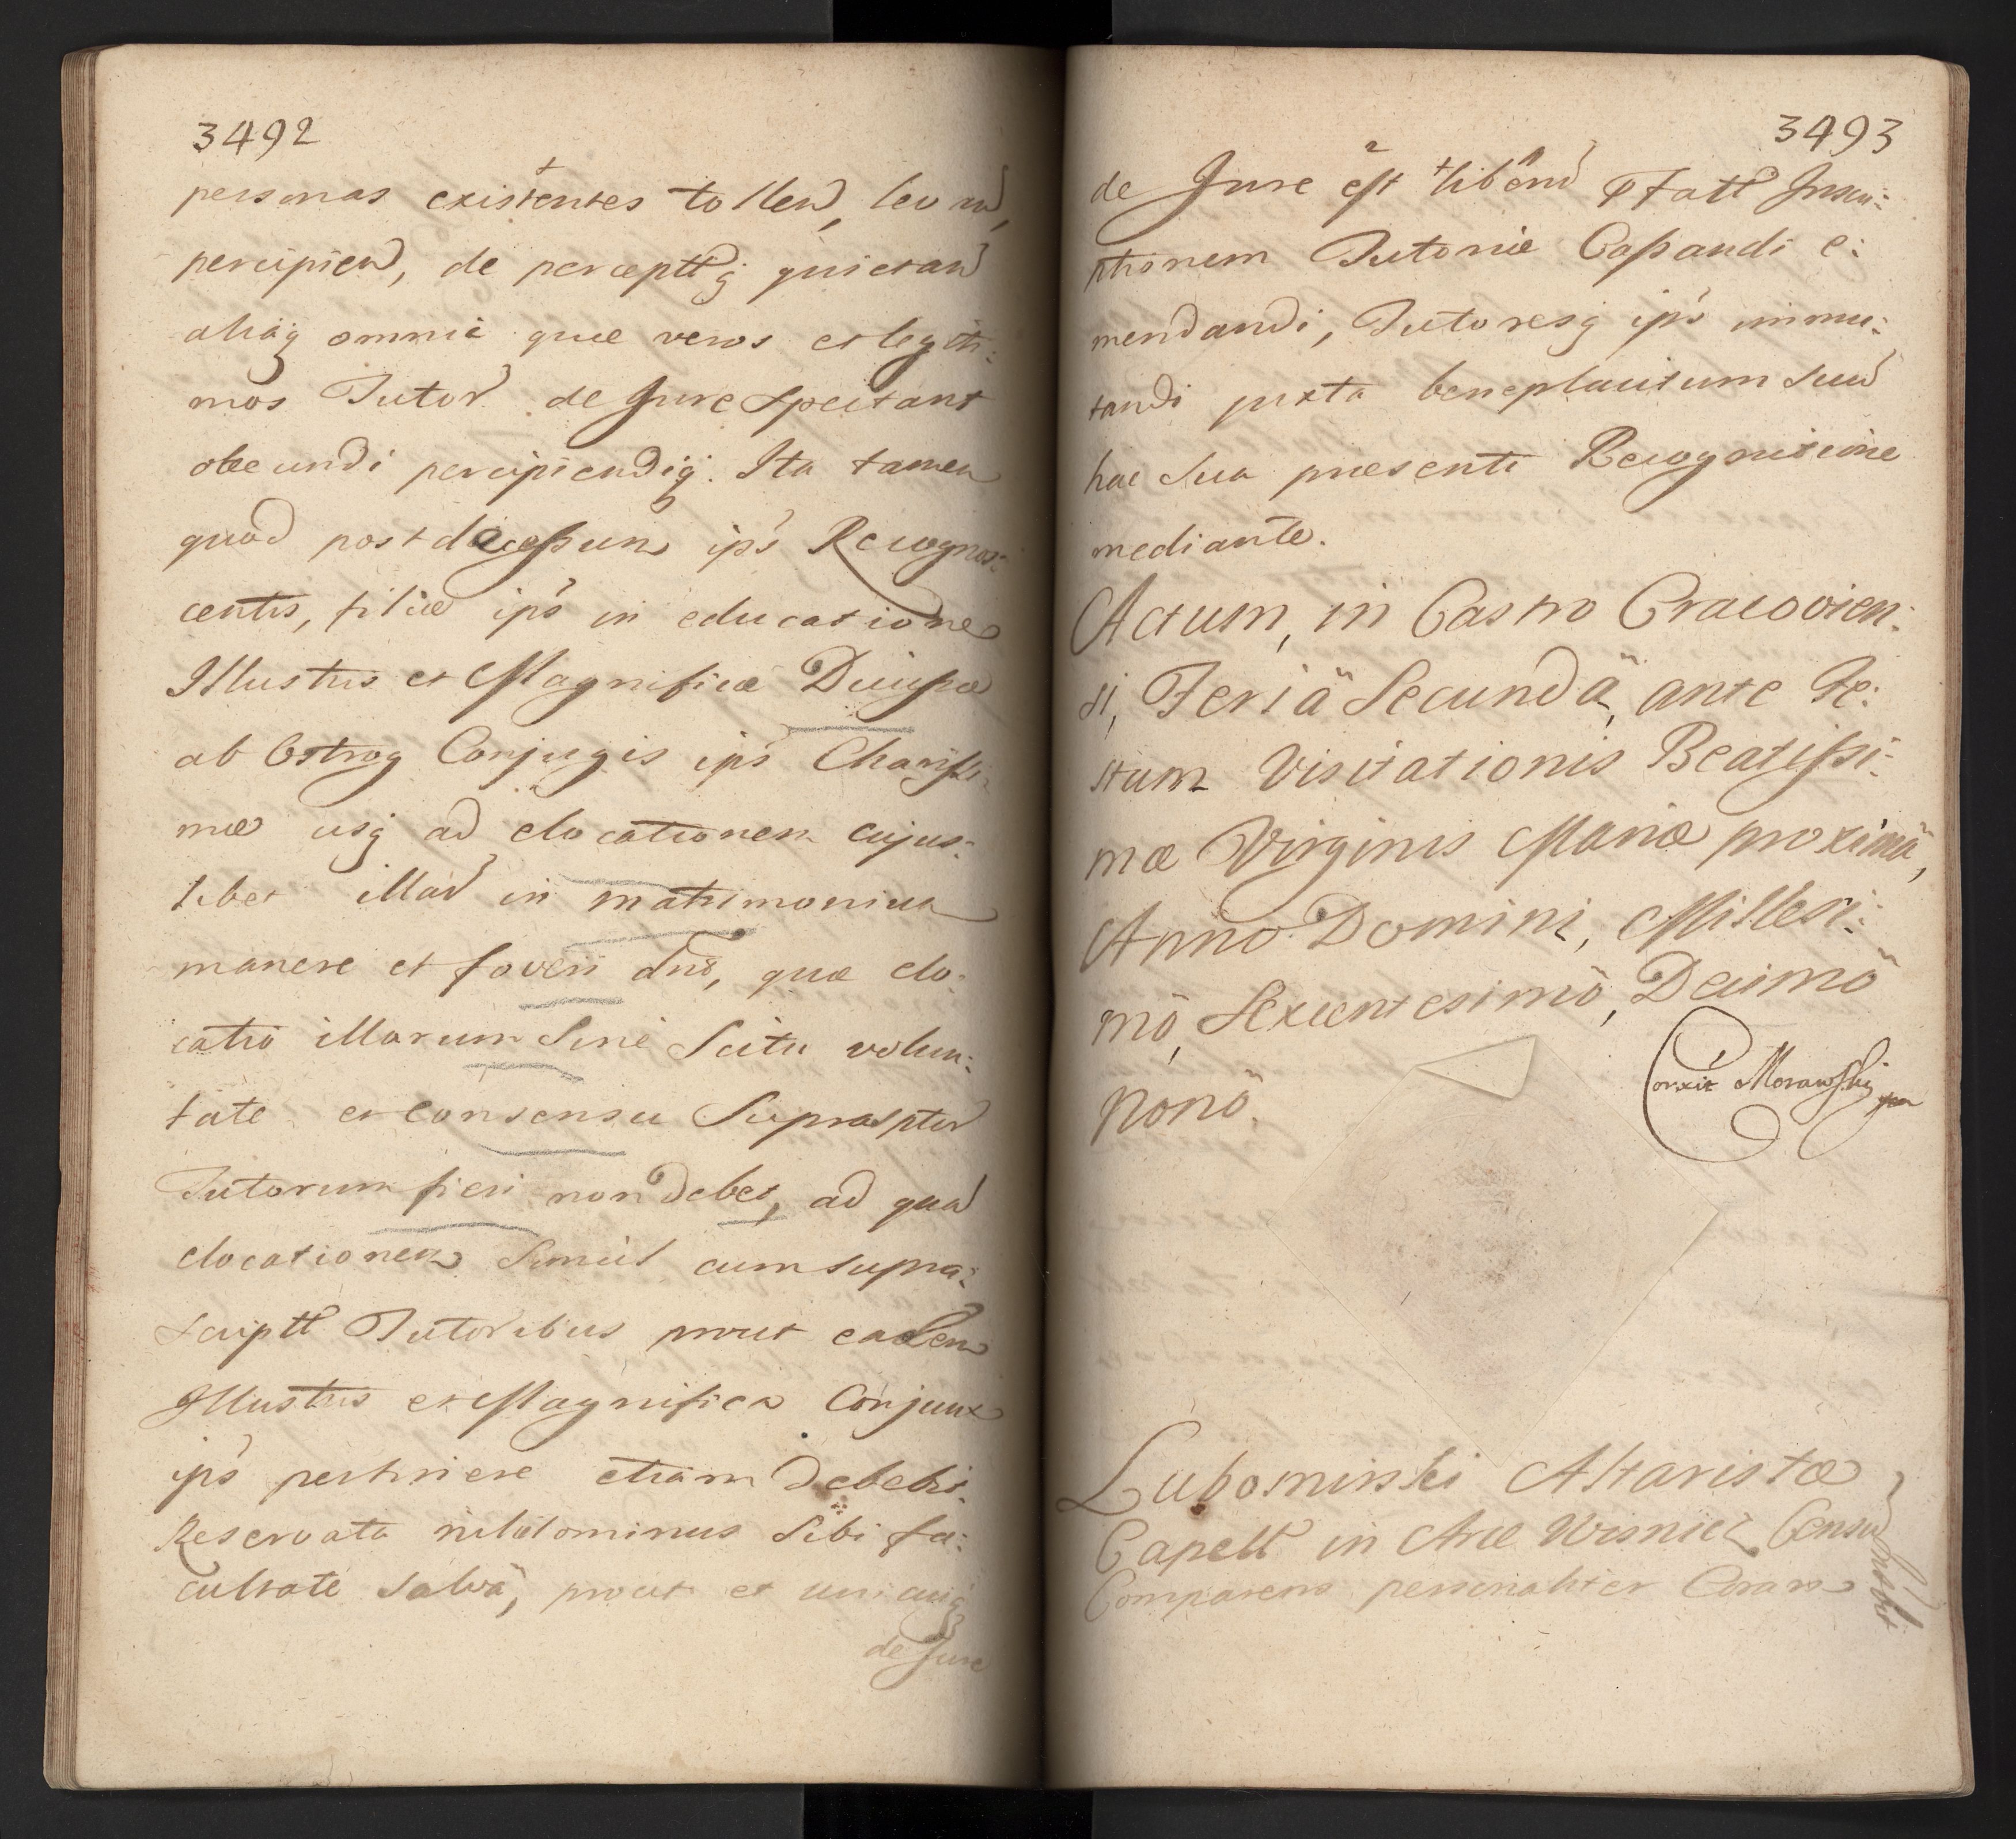 3492
personas existentes tollend, levand,
percipiend, de perceptt̃q; quietand
aliaq; omnia quæ veros et legiti:
mos Tutor̃ de Jure spectant
obeundi percipiendiq;. Ita tamen
quod post decessum ips̃ Recognos:
centis, filiæ ips̃ in educatione
Illustris et Magnificæ Ducissæ
ab Ostrog Conjugis ips̃ Charissi:
mæ usq; ad elocationem cujus:
libet illar̃ in matrimonium
manere et foveri , quæ elo:
catio illarum sine scitu volun:
tate et consensu
Tutorum fieri non debet, ad quã
elocationem simul cum supra:
scriptt̃ Tutoribus prout eadem
Illustris et Magnifica Conjunx
ips̃ pertinere etiam debebit.
Reservata nihilominus sibi fa:
cultate salvâ, prout et unicuiq;
de Jure
3493
de Jure est libẽrũ Inscri:
ptionem Tutoriæ Cassandi e:
mendandi, Tutoresq; ips̃ immu:
tandi juxta beneplacitum suũ
hac sua præsenti Recognitione
mediante.
Actum, in Castro Cracovien:
si, Feriâ Secundâ, ante Fe:
stum Visitationis Beatissi:
mæ Virginis Mariæ proximâ,
Anno Domini, Millesi:
mõ, Sexcentesimõ, Decimõ
Nonõ.
Corxit Morawski
Lubomirski Altaristæ
Capell̃ in Arce Wisnicz Censũ
Comparens personaliter Coram